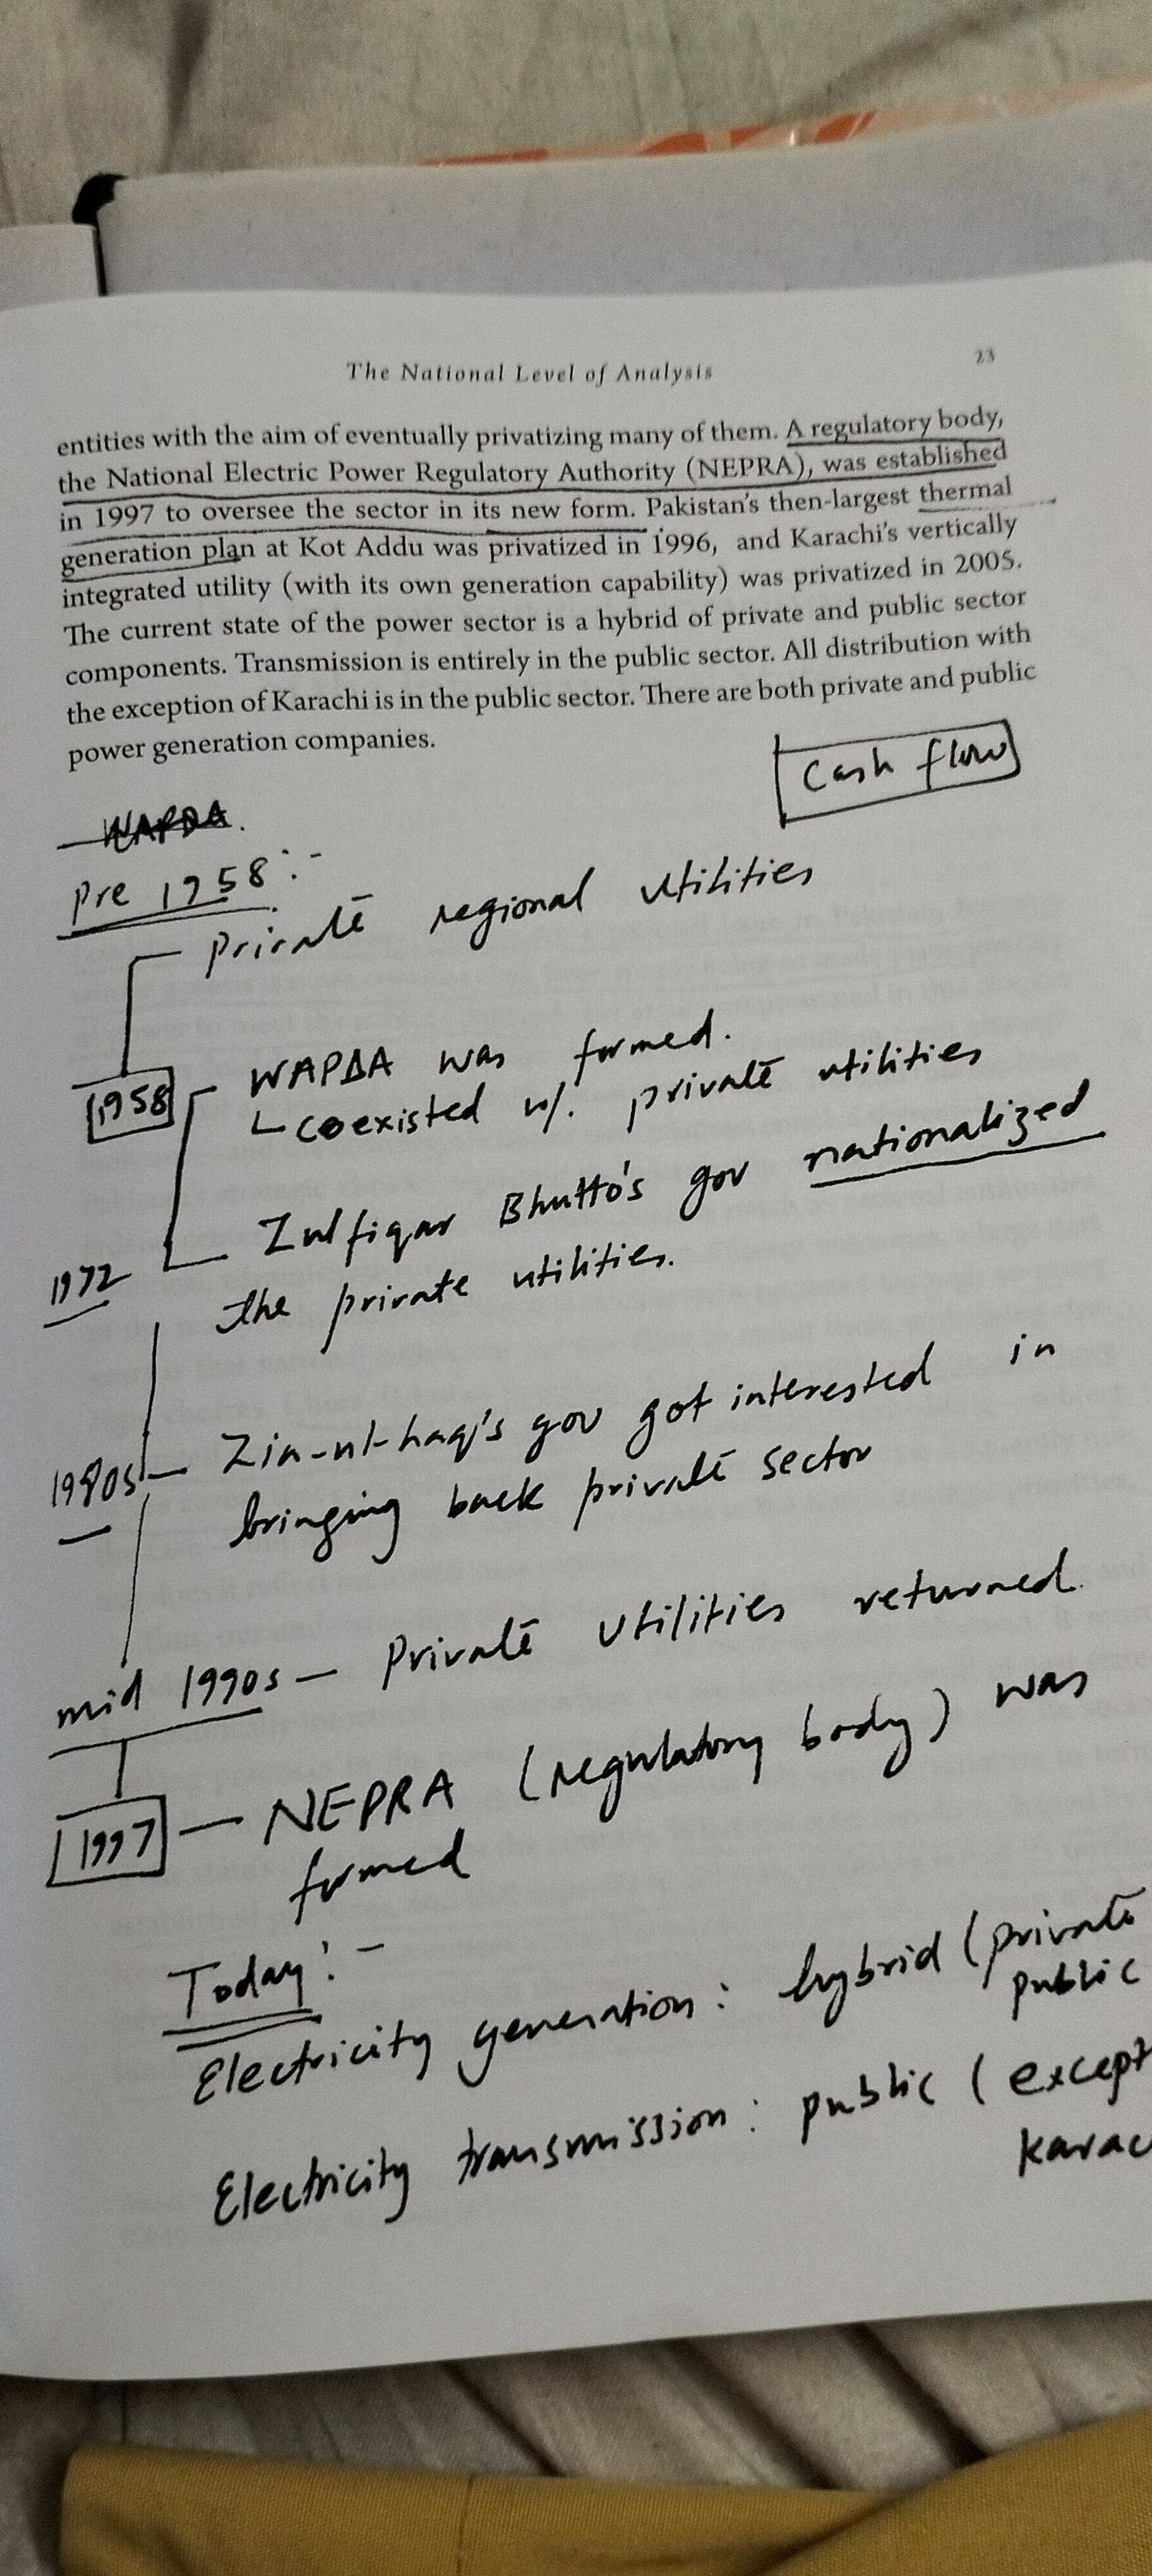 The National Level of Analysis
23
entities with the aim of eventually privatizing many of them. A regulatory body,
the National Electric Power Regulatory Authority (NEPRA), was established
in 1997 to oversee the sector in its new form. Pakistan's then-largest thermal
generation plan at Kot Addu was privatized in 1996, and Karachi's vertically
integrated utility (with its own generation capability) was privatized in 2005.
The current state of the power sector is a hybrid of private and public sector
components. Transmission is entirely in the public sector. All distribution with
the exception of Karachi is in the public sector. There are both private and public
power generation companies.
Cash flow
WAPDA.
Pre 1958:-
Private regional utilities
1958
WAPDA was formed.
coexisted w/. private utilities
1972
Zulfiqar Bhutto's gov nationalized
the private utilities.
1980s - Zia-ul-haq's gov got interested in
bringing back private sector
mid 1990s - Private utilities returned.
1997 - NEPRA (regulatory body) was
formed
Today:-
Electricity generation: hybrid (private
public
Electricity transmission: public (except
Karac